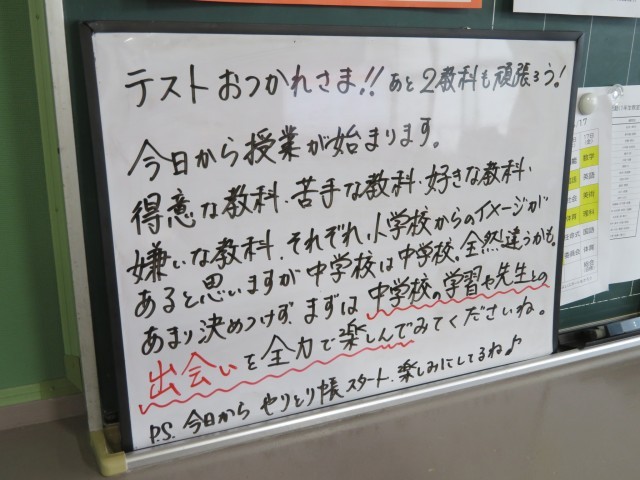 テストおつかれさま!! あと2教科も頑張ろう!
今日から授業が始まります。
得意な教科・苦手な教科・好きな教科・
嫌いな教科、それぞれ、小学校からのイメージが
あると思いますが中学校は中学校、全然違うかも。
あまり決めつけず、まずは中学校の学習や先生との
出会いを全力で楽しんでみてくださいね。
P.S. 今日から やりとり帳スタート、楽しみにしてるね♪
17
数学
英語
美術
体育 理科
国語
体育